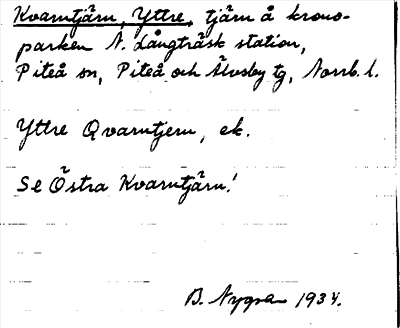 Kvarntjärn, Yttre, tjärn å krono-
parken N. Långträsk station,
Piteå sn, Piteå och Älvsby tg, Norrb. l.
Yttre Qvarntjern, ek.
Se Östra Kvarntjärn!
B. Nygren 1934.